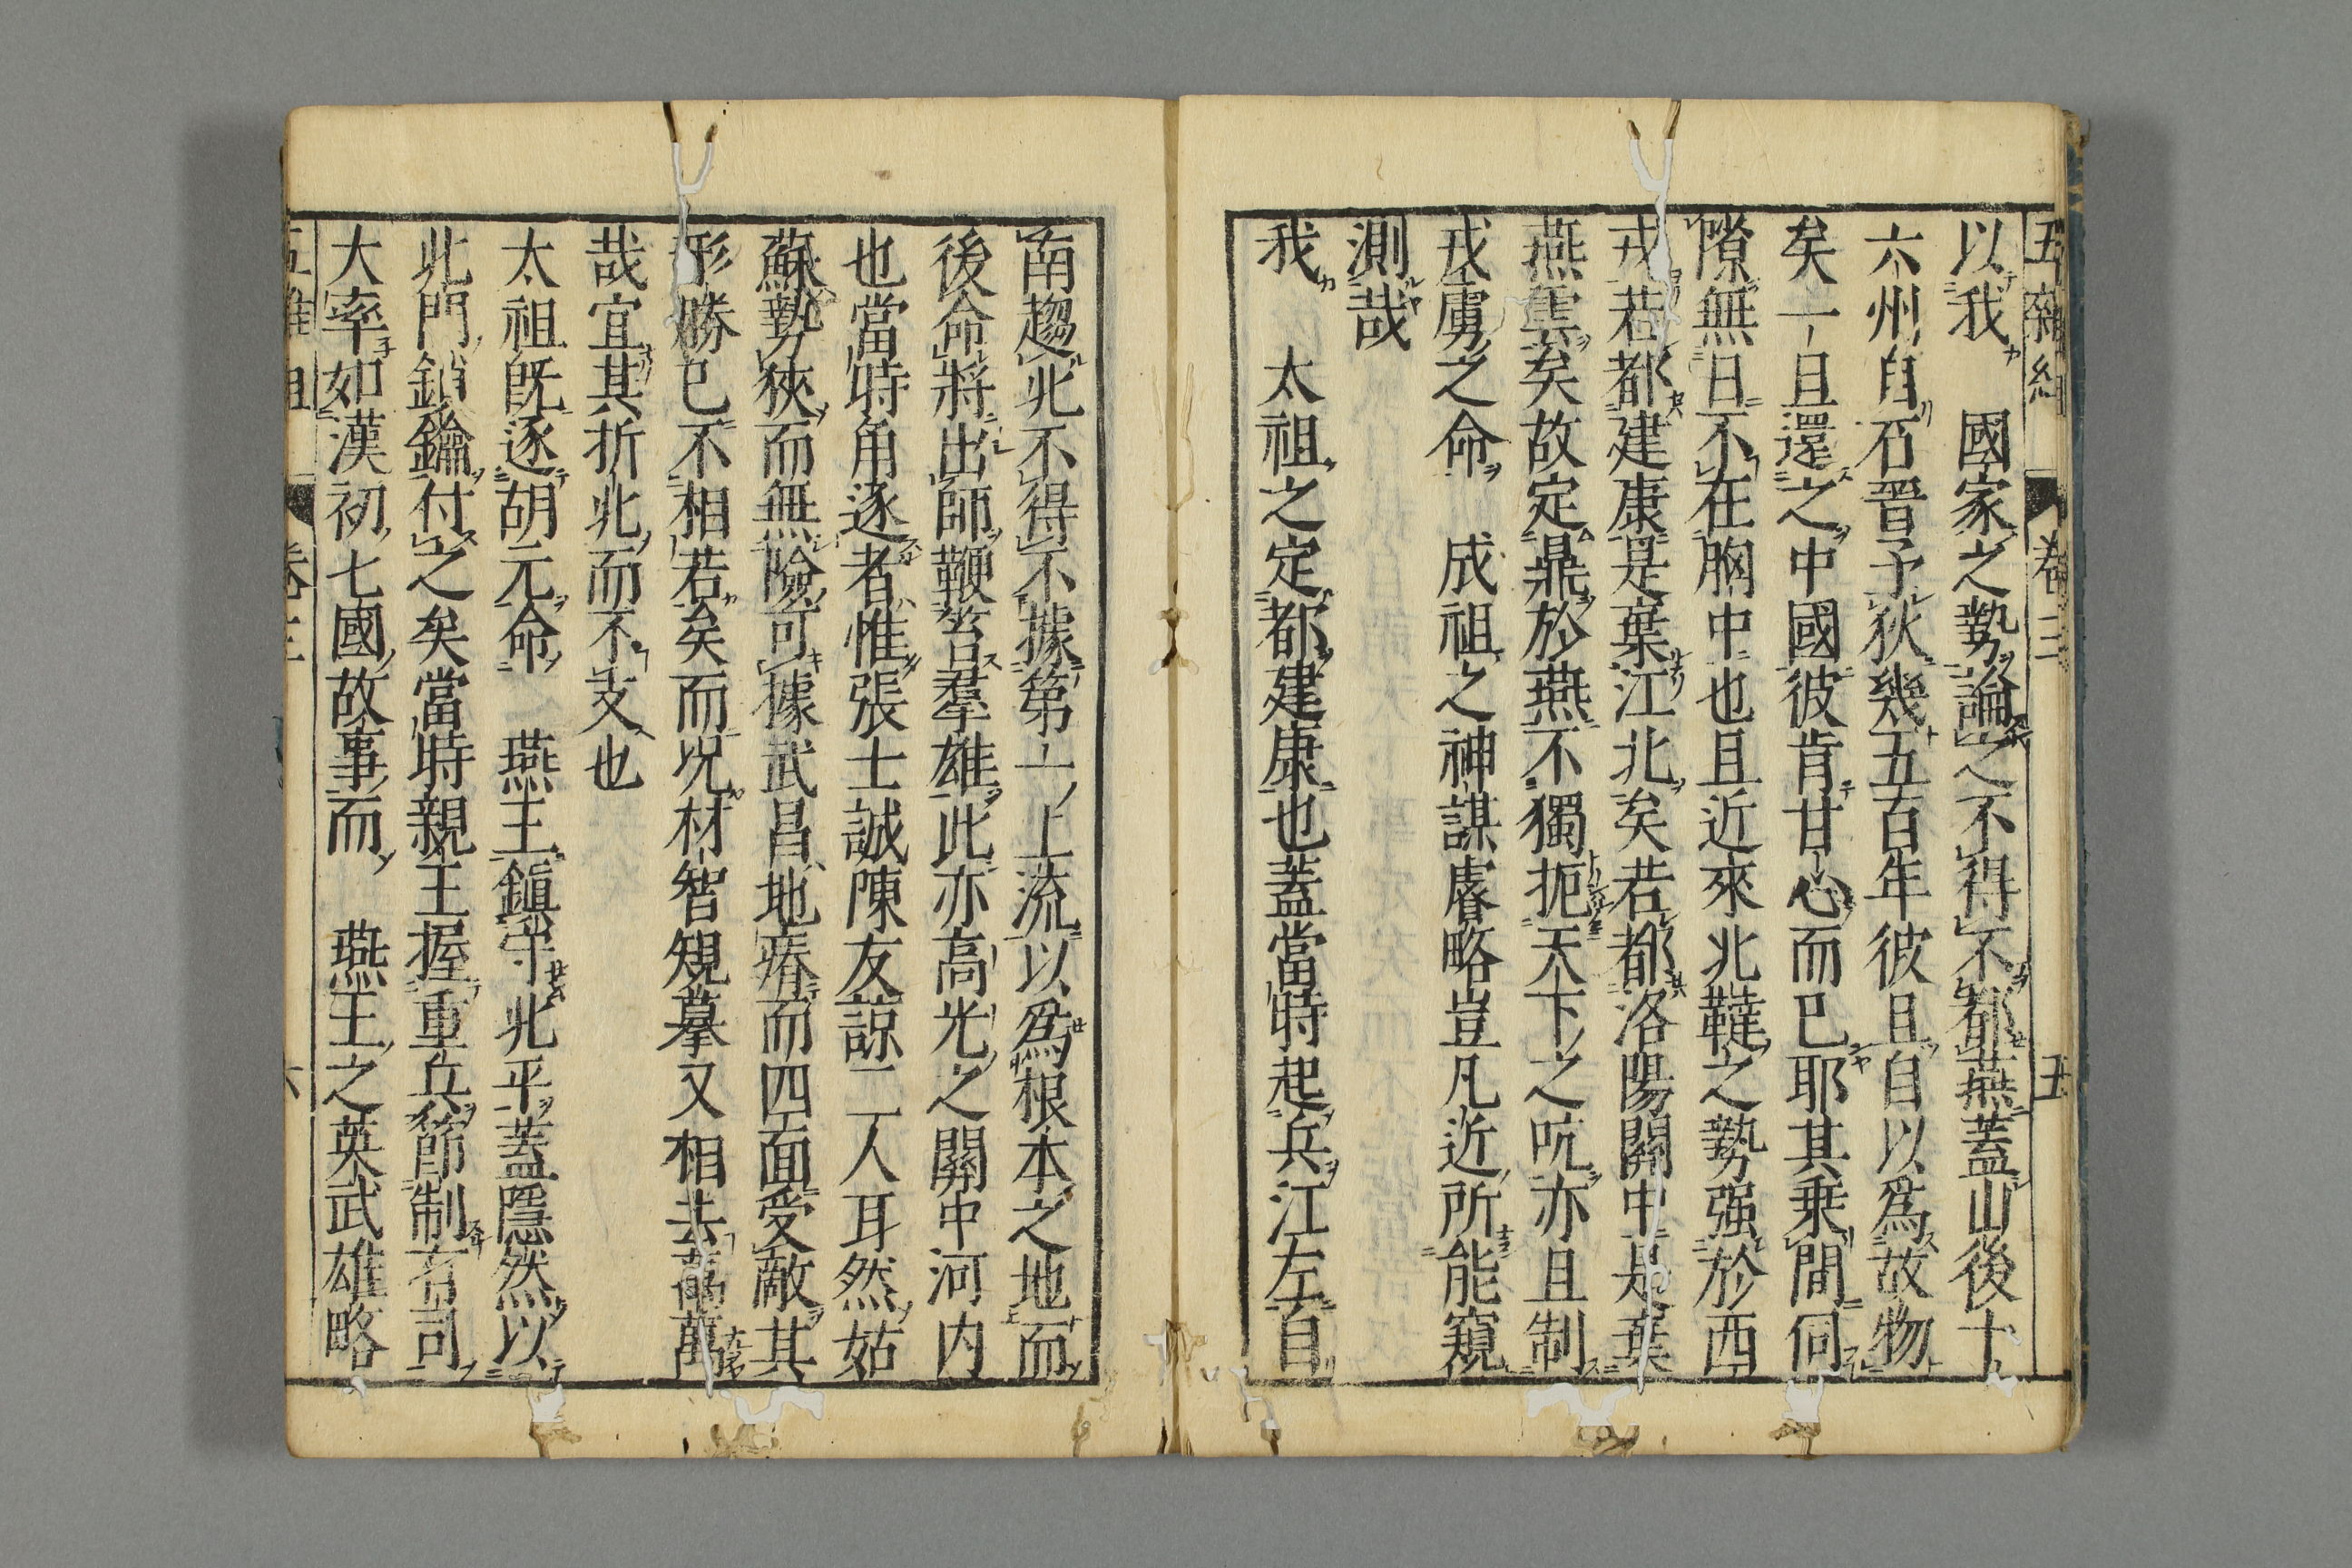 五雜組 卷三 五
以我 國家之勢論之不得不都燕蓋山後十
六州自石晋予狄幾五百年彼且自以爲故物
矣一旦還之中國彼肯甘心而巳耶其乗間伺
隙無日不在胸中也且近來北韃之勢强於西
戎若都建康是棄江北矣若都洛陽關中是棄
燕雲矣故定鼎於燕不獨扼天下之吭亦且制
戎虜之命 成祖之神謀睿略豈凡近所能窺
測哉
我 太祖之定都建康也蓋當時起兵江左自
南趨北不得不據第一上流以爲根本之地而
後命將出師鞭笞羣雄此亦高光之關中河内
也當時角逐者惟張士誠陳友諒二人耳然姑
蘇勢狹而無險可據武昌地瘠而四面受敵其
形勝巳不相若矣而况材智䂓摹又相去萬萬
哉宜其折北而不支也
太祖旣逐胡元命 燕王鎭守北平蓋隱然以
北門鎖鑰付之矣當時親王握重兵節制有司
大率如漢初七國故事而 燕王之英武雄略
五雜組 卷三 六